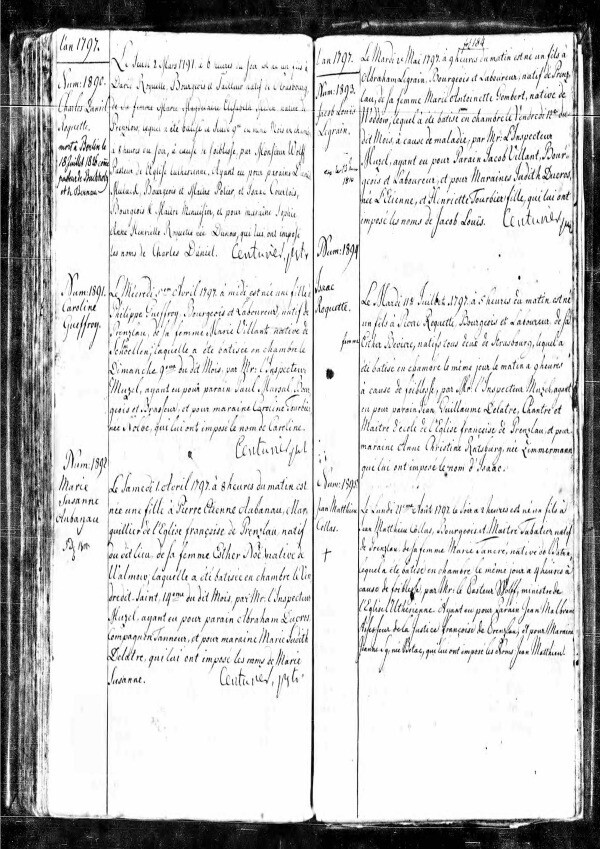 l'an 1797.
Num: 1890.
Charles Daniel
Roquette.
mort à Berlin le
18 Juillet 1846
Le Jeudi 2 Mars 1797 à 6 heures du soir est né un fils à
Daniel Roquette, Bourgeois et natif de Strasbourg
de sa femme Marie Magdelaine native de
Prenzlow, lequel a été batisé le Jeudi 9me du même Mois en chambre
à heures du soir, à cause de foiblesse, par Monsieur Wolff
Pasteur de l'Eglise Luthérienne. Ayant eu pour parains
Bourgeois et Maitre Potier, et Isaac Courtois,
Bourgeois & Maitre Menuisier, et pour maraine Sophie
Anne Henriette Roquette née qui lui ont imposé
les noms de Charles Daniel. Centurier, pstr
Num: 1891.
Caroline
Gueffroy.
Le Mecredi 5me Avril 1797. à midi est née une fille à
Philippe Gueffroy, Bourgeois et Laboureur, natif de
Prenzlau, de sa femme Marie Villant native de
laquelle a été batisée en chambre le
Dimanche 9me du dit Mois, par Mr: l'Inspecteur
Muzel, ayant eu pour parain Paul Bour-
geois et Brasseur, et pour maraine Caroline Tourbié
née qui lui ont imposé le nom de Caroline.
Centurier, pstr
Num: 1892
Marie
Susanne
Aubanau
Le Samedi 1 Avril 1797 à 8 heures du matin est
née une fille à Pierre Etienne Aubanau, Mar-
guillier de l'Eglise françoise de Prenzlau, natif
du dit lieu, de sa femme Esther Noé native de
Walmow, laquelle a été batisée en chambre le Ven-
dredi Saint, 14me du dit Mois, par Mr: l'Inspecteur
Muzel, ayant eu pour parain Abraham Lucros,
Compagnon Tanneur, et pour maraine Marie Judith
Delâtre, qui lui ont imposé les noms de Marie
Susanne. Centurier, pstr
184
l'an 1797.
Num: 1893.
Jacob Louis
Legrain.
Le Mardi 2 Mai 1797. à 9 heures du matin est né un fils à
Abraham Legrain, Bourgeois et Laboureur, natif de Prenz-
lau, de sa femme Marie Antoinette Gombert, native de
lequel a été batisé en chambre le Vendredi 12me du
dit Mois, à cause de maladie, par Mr: l'Inspecteur
Muzel, ayant eu pour Parain Jacob Villant, Bour-
geois et Laboureur, et pour Maraines Judith Lucros,
née L'Etienne, et Henriette Tourbier fille, qui lui ont
imposé les noms de Jacob Louis. Centurier, pstr
Num: 1894
Isaac
Roquette.
Le Mardi 18 Juillet 1797. à 5 heures du matin est né
un fils à Pierre Roquette, Bourgeois et Laboureur, de sa
femme Esther Devière, natifs tous deux de Strasbourg, lequel a
été batisé en chambre le même jour le matin à 9 heures
à cause de foiblesse, par Mr: l'Inspecteur Muzel, ayant
eu pour parain Jean Guillaume Delatre, Chantre et
Maitre d'école de l'Eglise françoise de Prenzlau, et pour
maraine Anne Christine Ratsburg, née Zimmermann
qui lui ont imposé le nom d'Isaac.
Num: 1895
Jean Matthieu
Collas.
Le Lundi 21me Août 1797. le soir à heures est né un fils à
Jean Matthieu Collas, Bourgeois et Maitre natif
de Prenzlau, de sa femme Marie Sancre, native de
lequel a été batisé en chambre le même jour à 4 heures à
cause de foiblesse, par Mr: le Pasteur Wolff, ministre de
l'Eglise Luthérienne. Ayant eu pour parain Jean Malbranc
Assesseur de la Justice françoise de Prenzlau, et pour Maraine
Jeanne née qui lui ont imposé les Noms Jean Matthieu